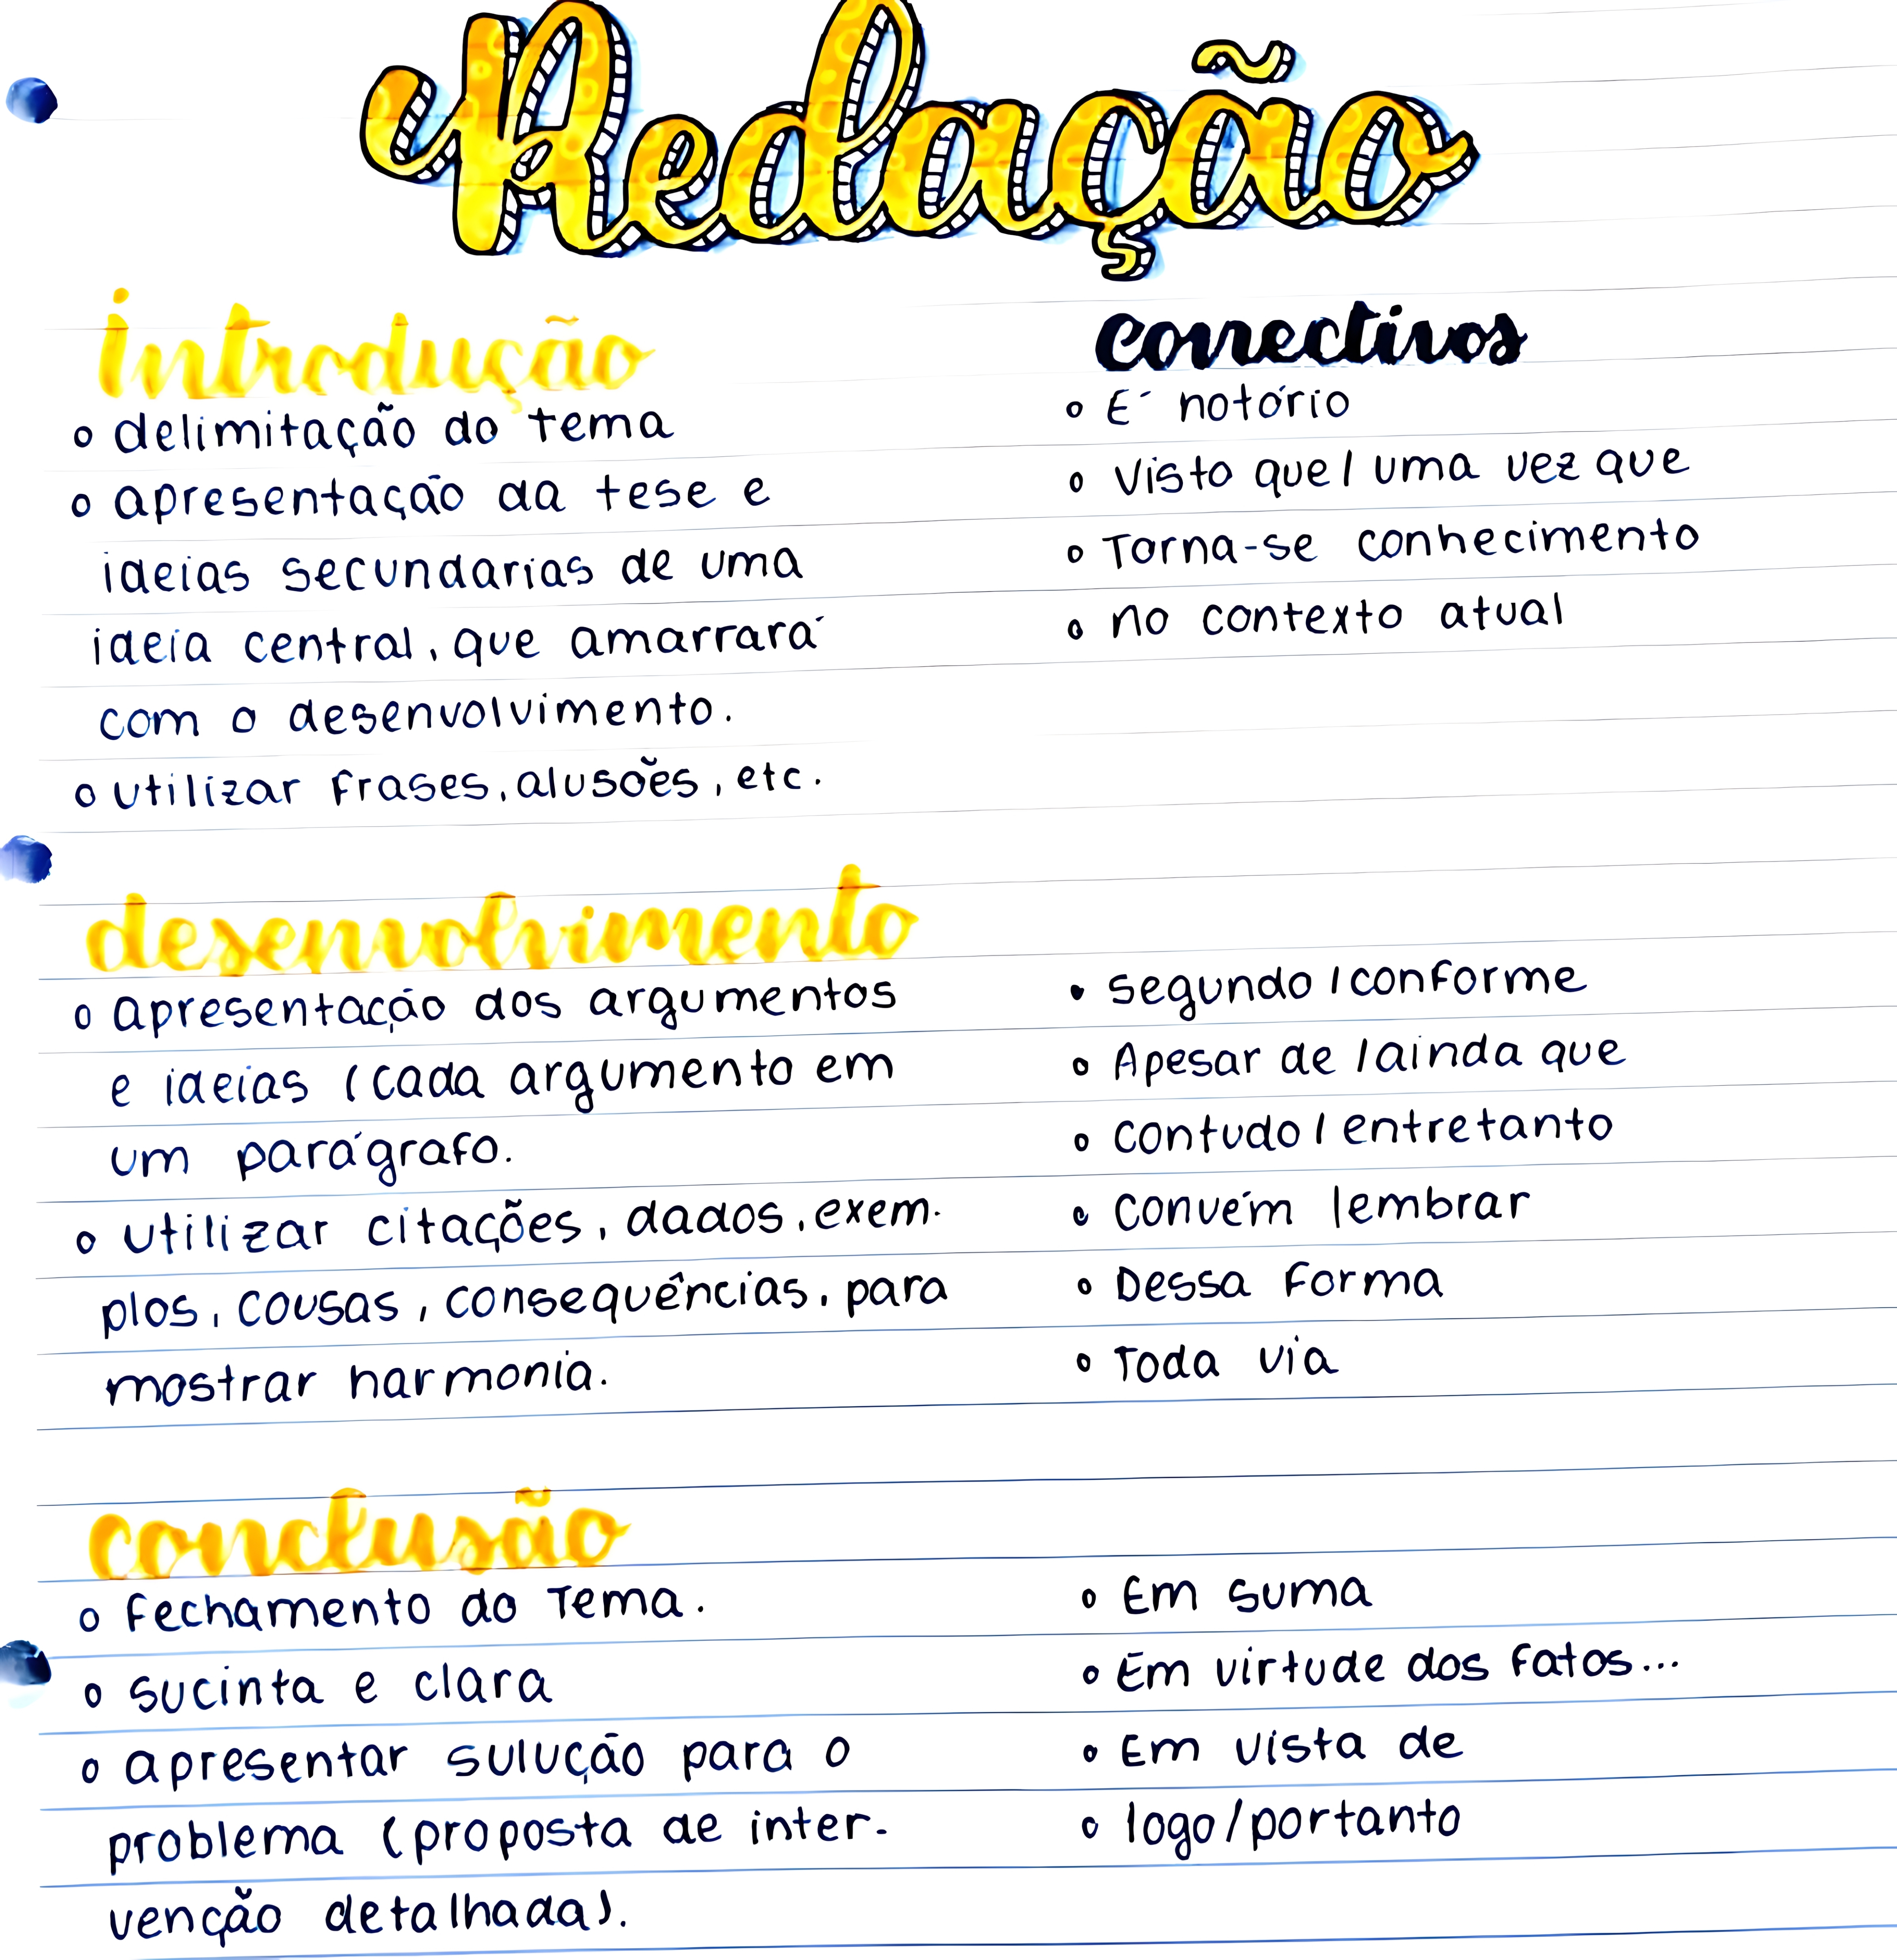 Redação
Introdução
o delimitação do tema
o apresentação da tese e
ideias secundarias de uma
ideia central, que amarrará
com o desenvolvimento.
o utilizar frases, alusões, etc.
conectivos
o É notório
o Visto que/ uma vez que
o Torna-se conhecimento
o no contexto atual
desenvolvimento
o apresentação dos argumentos
e ideias (cada argumento em
um parágrafo.
o utilizar citações, dados, exem-
plos, cousas, consequências, para
mostrar harmonia.
• segundo / conforme
o Apesar de /ainda que
o contudo / entretanto
o convém lembrar
o Dessa forma
o Toda via
conclusão
o fechamento do Tema.
o sucinta e clara
o apresentar sulução para o
problema (proposta de inter-
venção detalhada).
o Em suma
o Em virtude dos fatos...
o Em vista de
o logo/portanto